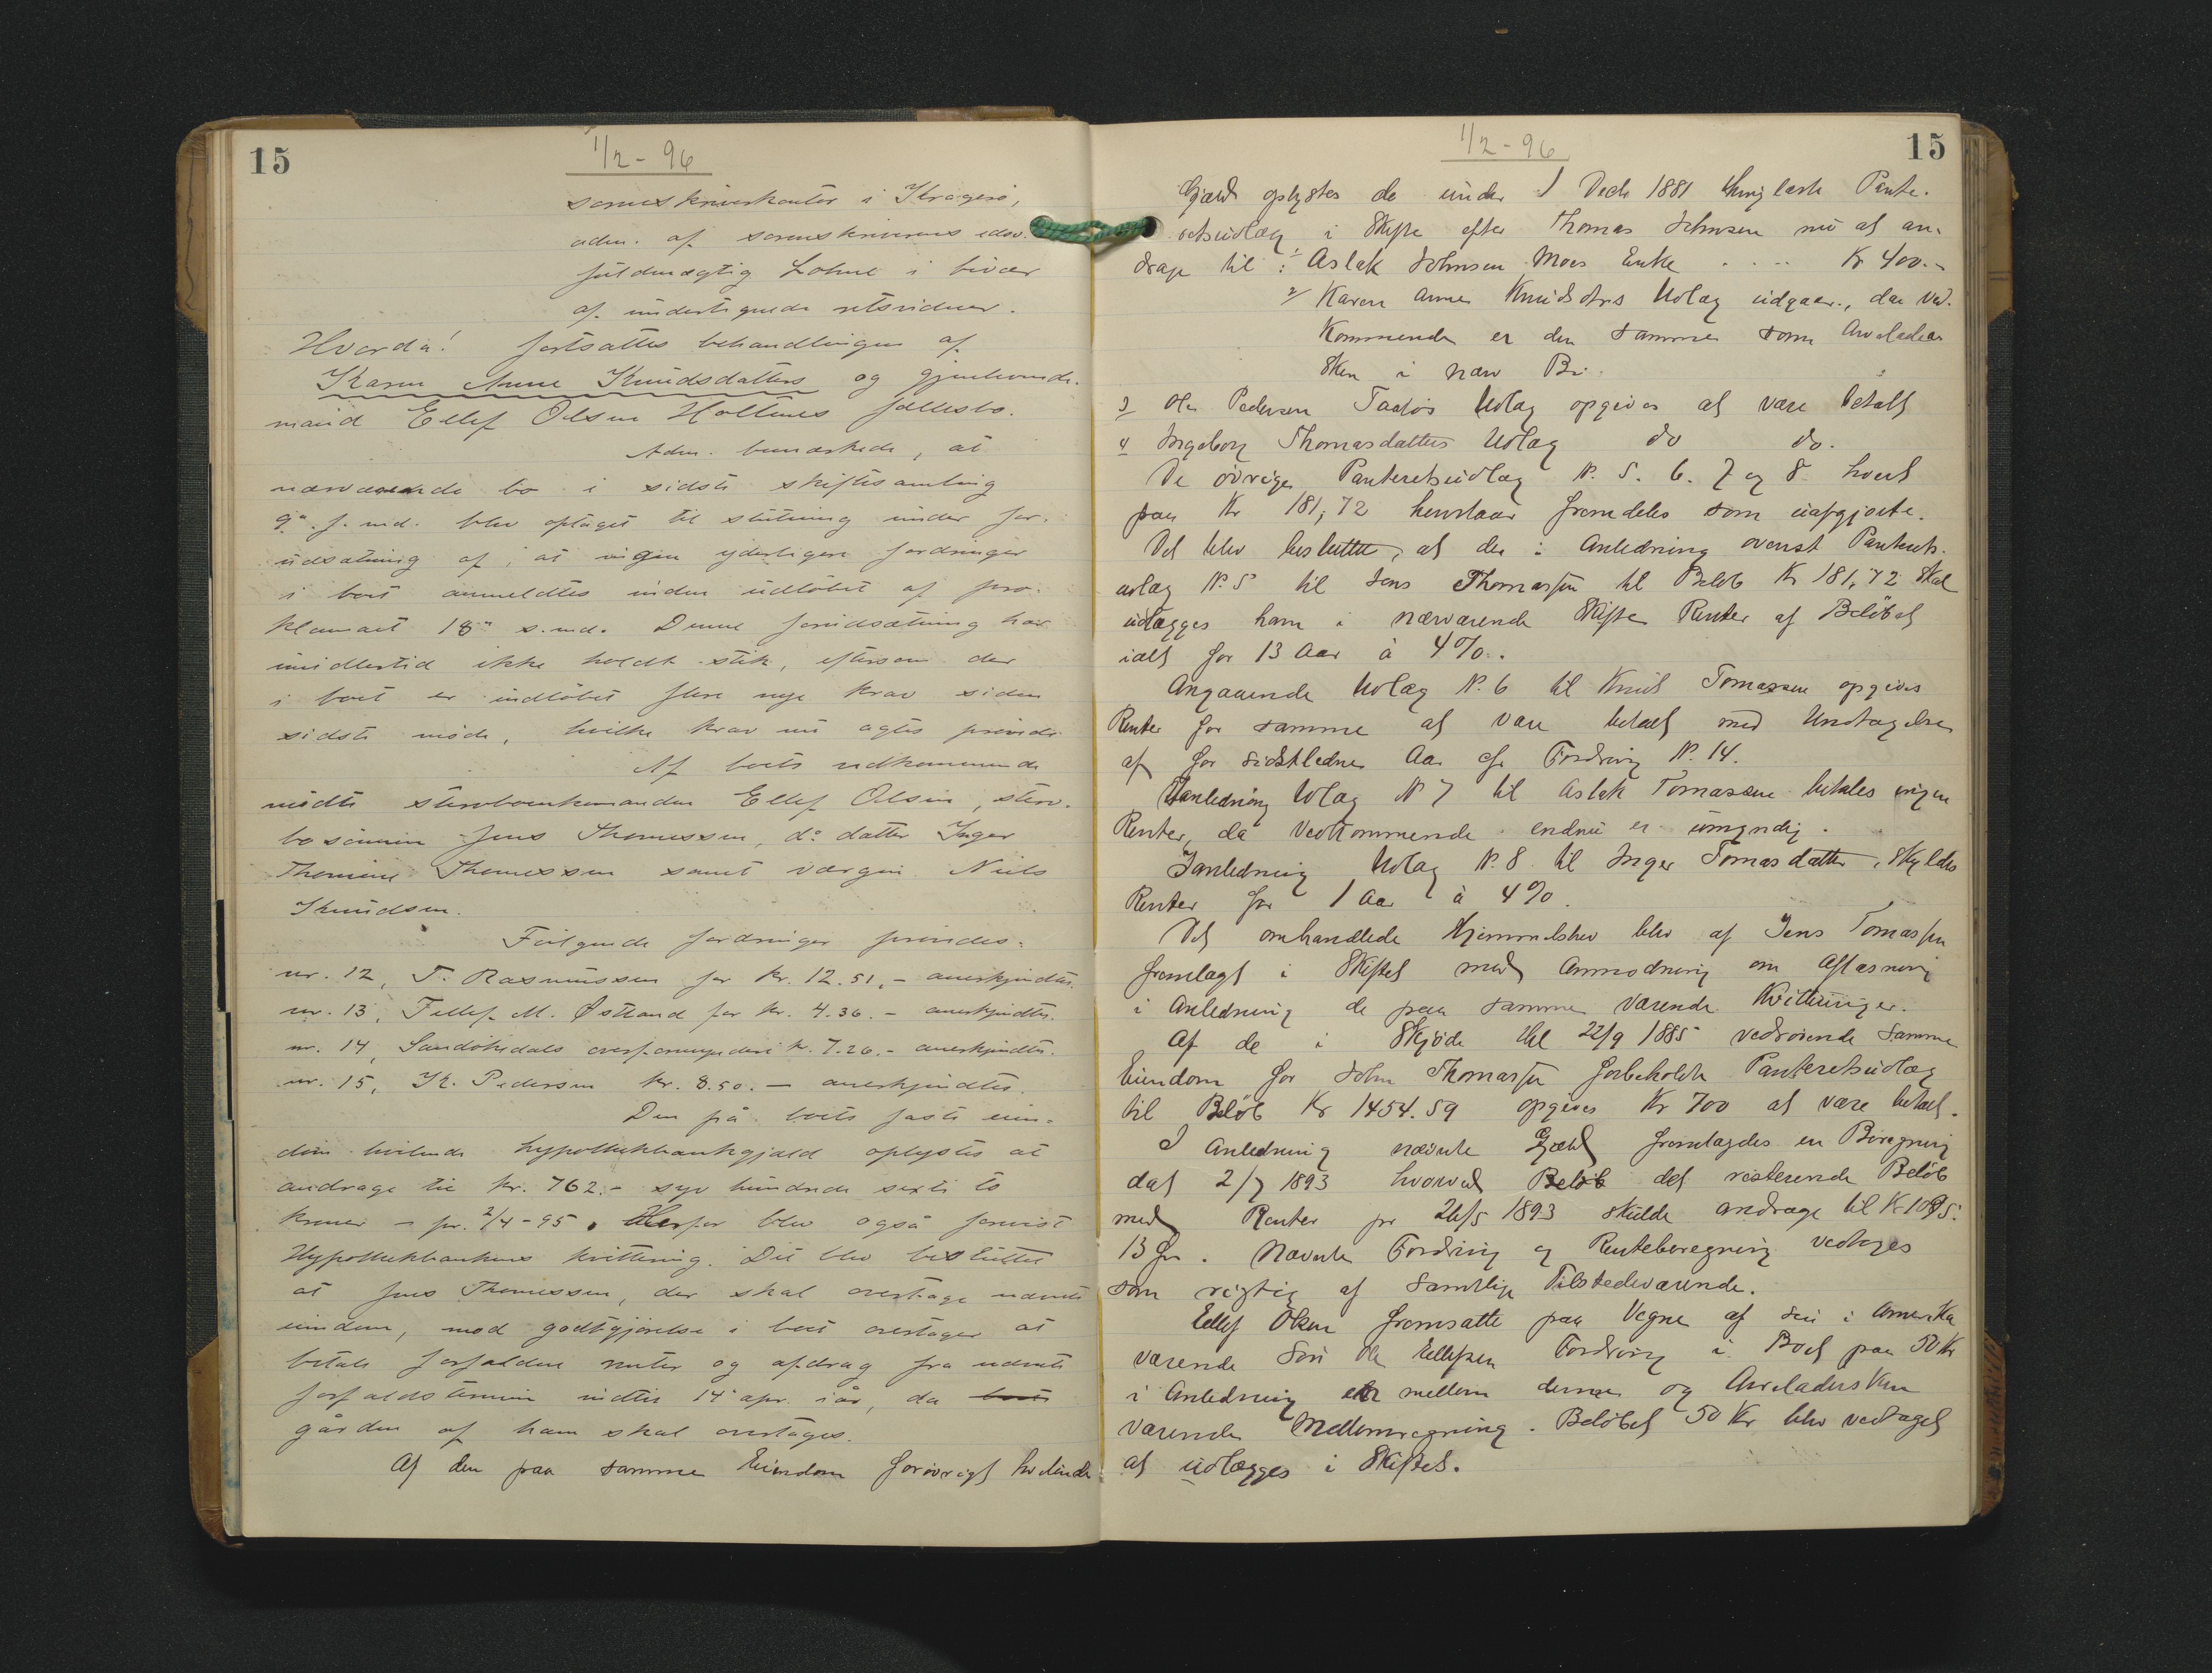 15
1/2 - 96
sorenskriverkontor i Kragerø,
adm. af sorenskriverens edsv.
fuldmægtig Lohne i bivær
af undertegnede retsvidner.
Hvorda! fortsattes behandlingen af
Karen Anne Knudsdatters og gjenlevende
mand Ellef Olsen Holtanes fællesbo.
Adm. bemærkede, at
nærværende bo i sidste skiftesamling
9de f. md. blev optaget til slutning under for-
udsætning af, at ingen yderligere fordringer
i boet anmeldtes inden udløbet af pro-
klamaet 18de s. md. Denne forudsætning har
imidlertid ikke holdt stik, eftersom der
i boet er indløbet flere nye krav siden
sidste møde, hvilke krav nu agtes prøvede.
Af boets vedkommende
mødte stervboenkemanden Ellef Olsen, sterv-
bosønnen Jens Thomessen, do datter Inger
Thomine Thomessen samt værgen Niels
Knudsen.
Følgende fordringer prøvedes:
nr. 12, T. Rasmussen for kr. 12.51,- anerkjendtes.
nr. 13, Tellef M. Østland for kr. 4.36.- anerkjendtes.
nr. 14, Sandøkedals overformynderi kr. 7.26.- anerkjendtes.
nr. 15, K. Pedersen kr. 8.50.- anerkjendtes.
Den på boets faste eien-
dom hvilende hypothekbankgjæld oplystes at
andrage til kr. 762.- syv hundrede sexti to
kroner - pr. 2/4-95. Herfor blev også forevist
Hypothekbankens kvittering. Det blev besluttet
at Jens Thomessen, der skal overtage nævnte
eiendom, mod godtgjørelse i boet overtager at
betale forfaldne renter og afdrag fra nævnte
forfaldstermin indtil 14de apr. iår, da boets
gården af ham skal overtages.
Af den paa samme Eiendom forøvrigt hvilende
15
1/2 - 96
Gjæld oplystes de under 1 Decb 1881 thinglæste Pante-
retsudlæg i Skifte efter Thomas Johnsen nu at an-
drage til: 1/ Aslak Johnsen Moes Enke . . . . Kr 400.-
2/ Karen Anne Knudsdtrs Udlæg udgaar, da Ved-
kommende er den samme som Arveladers-
ken i nærv Bo.
3 Ole Pedersen Taatøs Udlæg opgives at være betalt
4 Ingeborg Thomasdatters Udlæg do do.
De øvrige Panteretsudlæg N. 5. 6. 7 og 8 hvert
paa Kr 181,72 henstaar fremdeles som uafgjorte.
Det blev besluttet, at der i Anledning ovenst Panterets-
udlæg N. 5 til Jens Thomassen til Beløb Kr 181,72 skal
udlægges ham i nærværende Skifte Renter af Beløbet
ialt for 13 Aar à 4%.
Angaaende Udlæg N. 6 til Knud Tomassen opgives
Renter for samme at være betalt med Undtagelse
af for sidstledne Aar cfr Fordring N. 14.
I Anledning Udlæg N 7 til Aslak Tomassen betales ingen
Renter, da Vedkommende endnu er umyndig.
I Anledning Udlæg N. 8 til Inger Tomasdatter, skyldes
Renter for 1 Aar à 4%.
Det omhandlede Hjemmelsbrev blev af Jens Tomassen
fremlagt i Skiftet med Anmodning om Aflæsning
i Anledning de paa samme værende Kvitteringer.
Af de i Skjøde thl 22/9 1885 vedrørende samme
Eiendom for John Thomassen forbeholdte Panteretsudlæg
til Beløb Kr 1454.59 opgives Kr 700 at være betalt.
I Anledning nævnte Gjæld fremlagdes en Beregning
dat 2/7 1893 hvorved Beløb det resterende Beløb
med Renter pr 26/5 1893 skulde andrage til Kr 1095.
13 Ør. Nævnte Fordring og Renteberegning vedtoges
som rigtig af samtlige Tilstedeværende.
Ellef Olsen fremsatte paa Vegne af sin i Amerika
værende Søn Ole Ellefsen Fordring i Boet paa 50 Kr
i Anledning en mellem denne og Arveladersken
værende Mellemregning. Beløbet 50 Kr blev vedtaget
at udlægges i Skiftet.